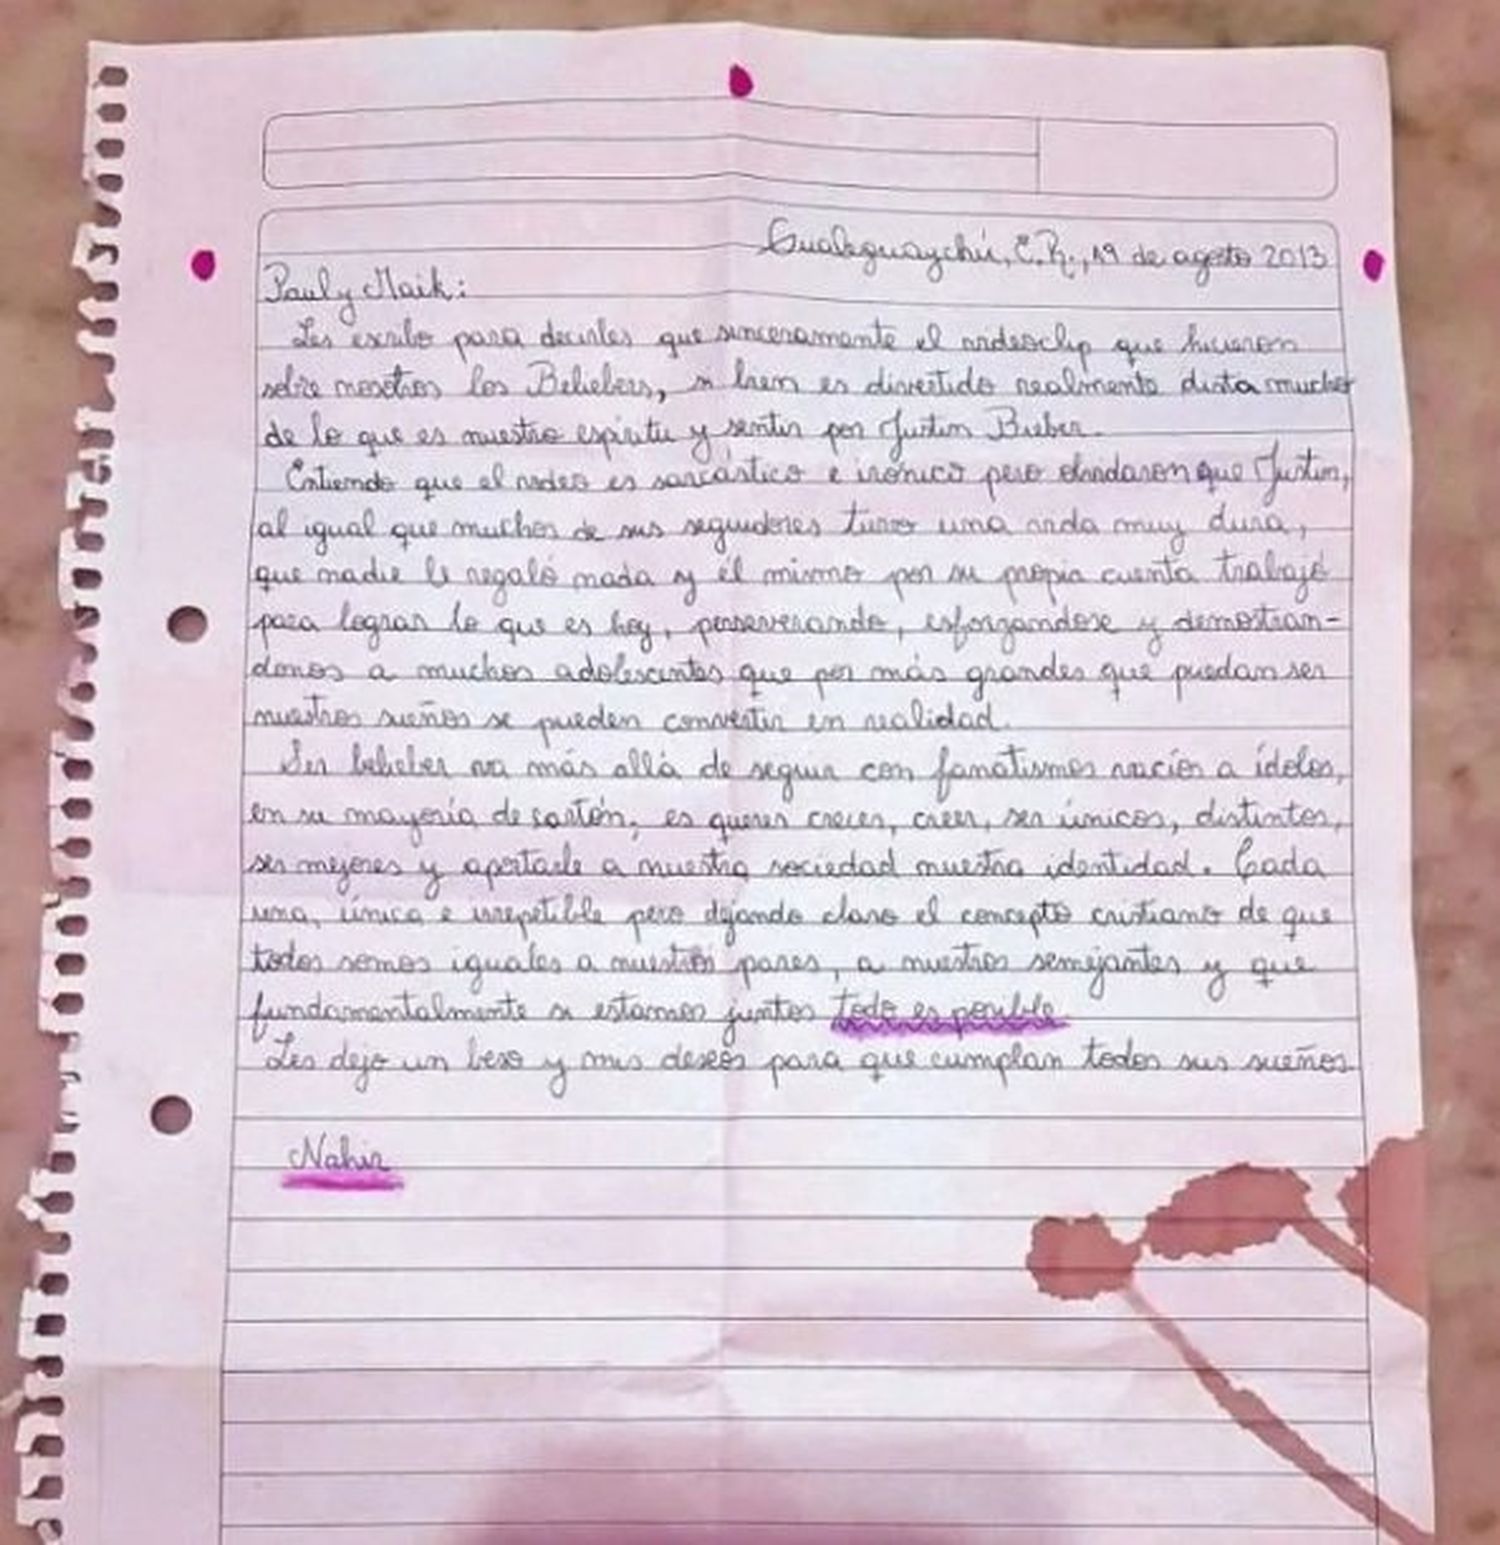 Gualeguaychú, E.R., 19 de agosto 2013
Paul y Maik:
Les escribo para decirles que sinceramente el videoclip que hicieron
sobre nosotros los Beliebers, si bien es divertido realmente dista mucho
de lo que es nuestro espíritu y sentir por Justin Bieber.
Entiendo que el video es sarcástico e irónico pero olvidaron que Justin,
al igual que muchos de sus seguidores tuvo una vida muy dura,
que nadie le regaló nada y él mismo por su propia cuenta trabajó
para lograr lo que es hoy, perseverando, esforzandose y demostran-
donos a muchos adolescentes que por más grandes que puedan ser
nuestros sueños se pueden convertir en realidad.
Ser belieber va más allá de seguir con fanatismos vacíos a ídolos,
en su mayoría de cartón, es querer crecer, creer, ser únicos, distintos,
ser mejores y aportarle a nuestra sociedad nuestra identidad. Cada
una, única e irrepetible pero dejando claro el concepto cristiano de que
todos somos iguales a nuestros pares, a nuestros semejantes y que
fundamentalmente si estamos juntos todo es posible
Les dejo un beso y mis deseos para que cumplan todos sus sueños.
Nahir